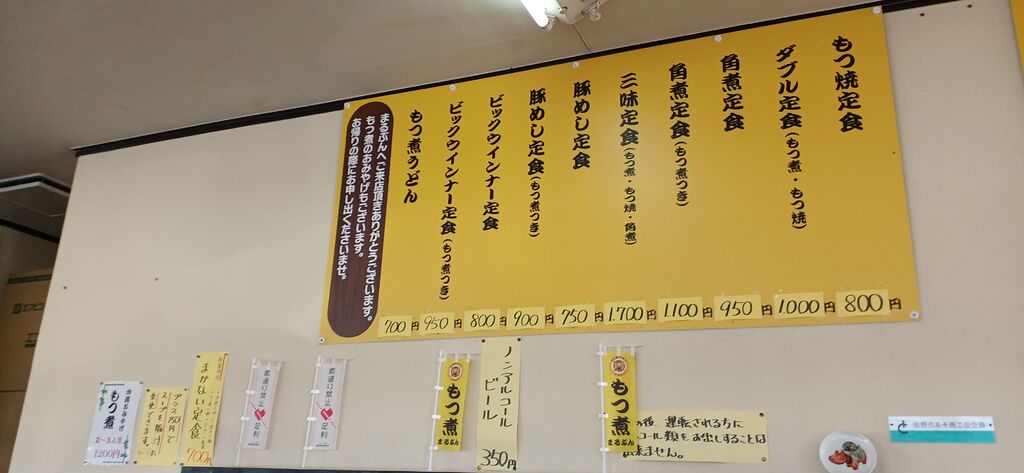 もつ焼定食
800円
ダブル定食(もつ煮・もつ焼)
1.000円
角煮定食
950円
角煮定食(もつ煮つき)
1.100円
三味定食(もつ煮・もつ焼・角煮)
1.700円
豚めし定食
750円
豚めし定食(もつ煮つき)
900円
ビックウインナー定食
800円
ビックウインナー定食(もつ煮つき)
950円
もつ煮うどん
700円
まるぶんへご来店頂きありがとうございます。
もつ煮のおみやげもございます。
お帰りの際にお申し出くださいませ。
もつ煮
2〜3人前
1200円
プラス150円で
スープを豚汁に
変更できます。
まかない定食
700円
素通り禁止
足利
素通り禁止
足利
もつ煮
まるぶん
ノンアルコール
ビール
350円
もつ煮
まるぶん
の後、運転される方に
コール類をお出しすることは
出来ません。
佐野市あそ商工会会員